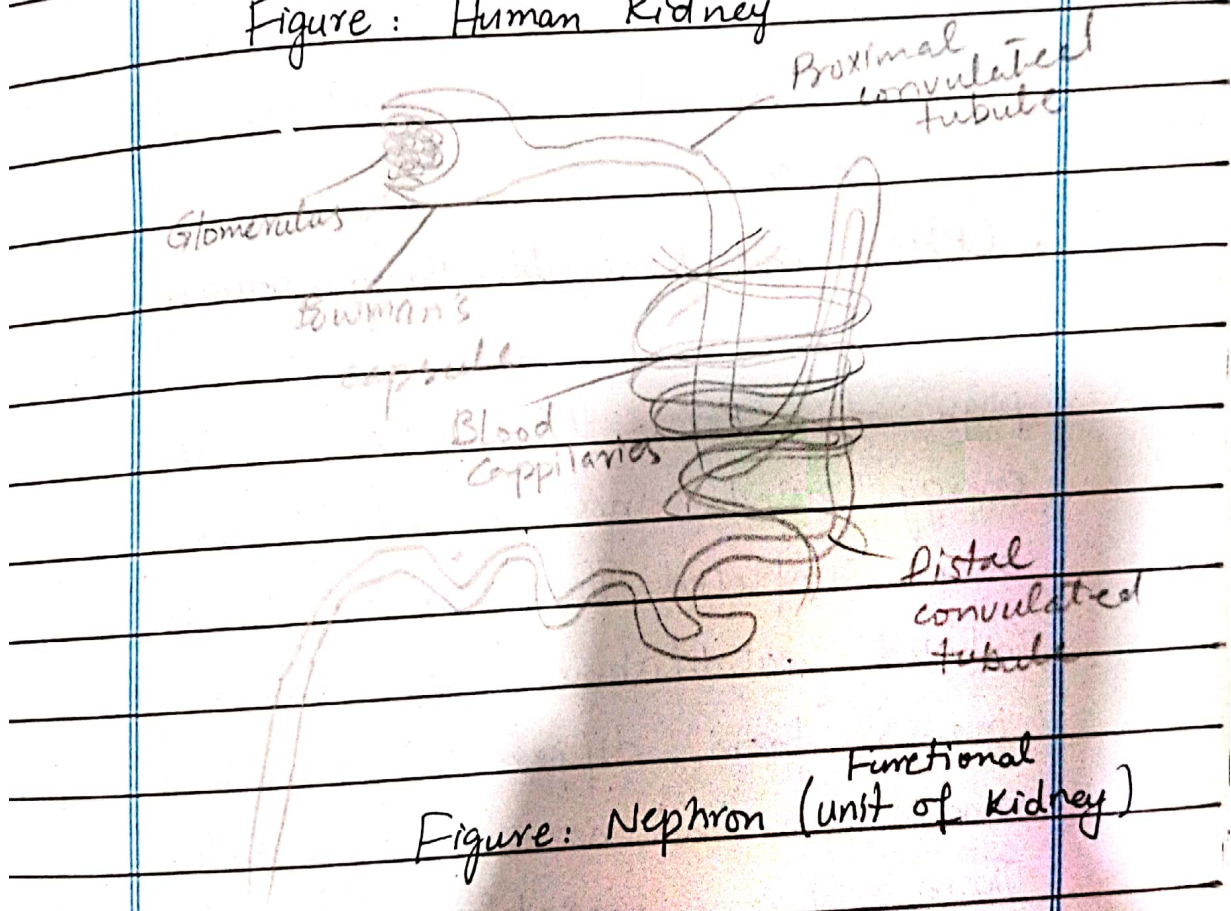 Figure : Human Kidney
Proximal
convulated
tubule
Glomerulus
Bowman's
capsule
Blood
Cappilaries
Distal
convulated
tubule
Functional
Figure: Nephron (unit of Kidney)